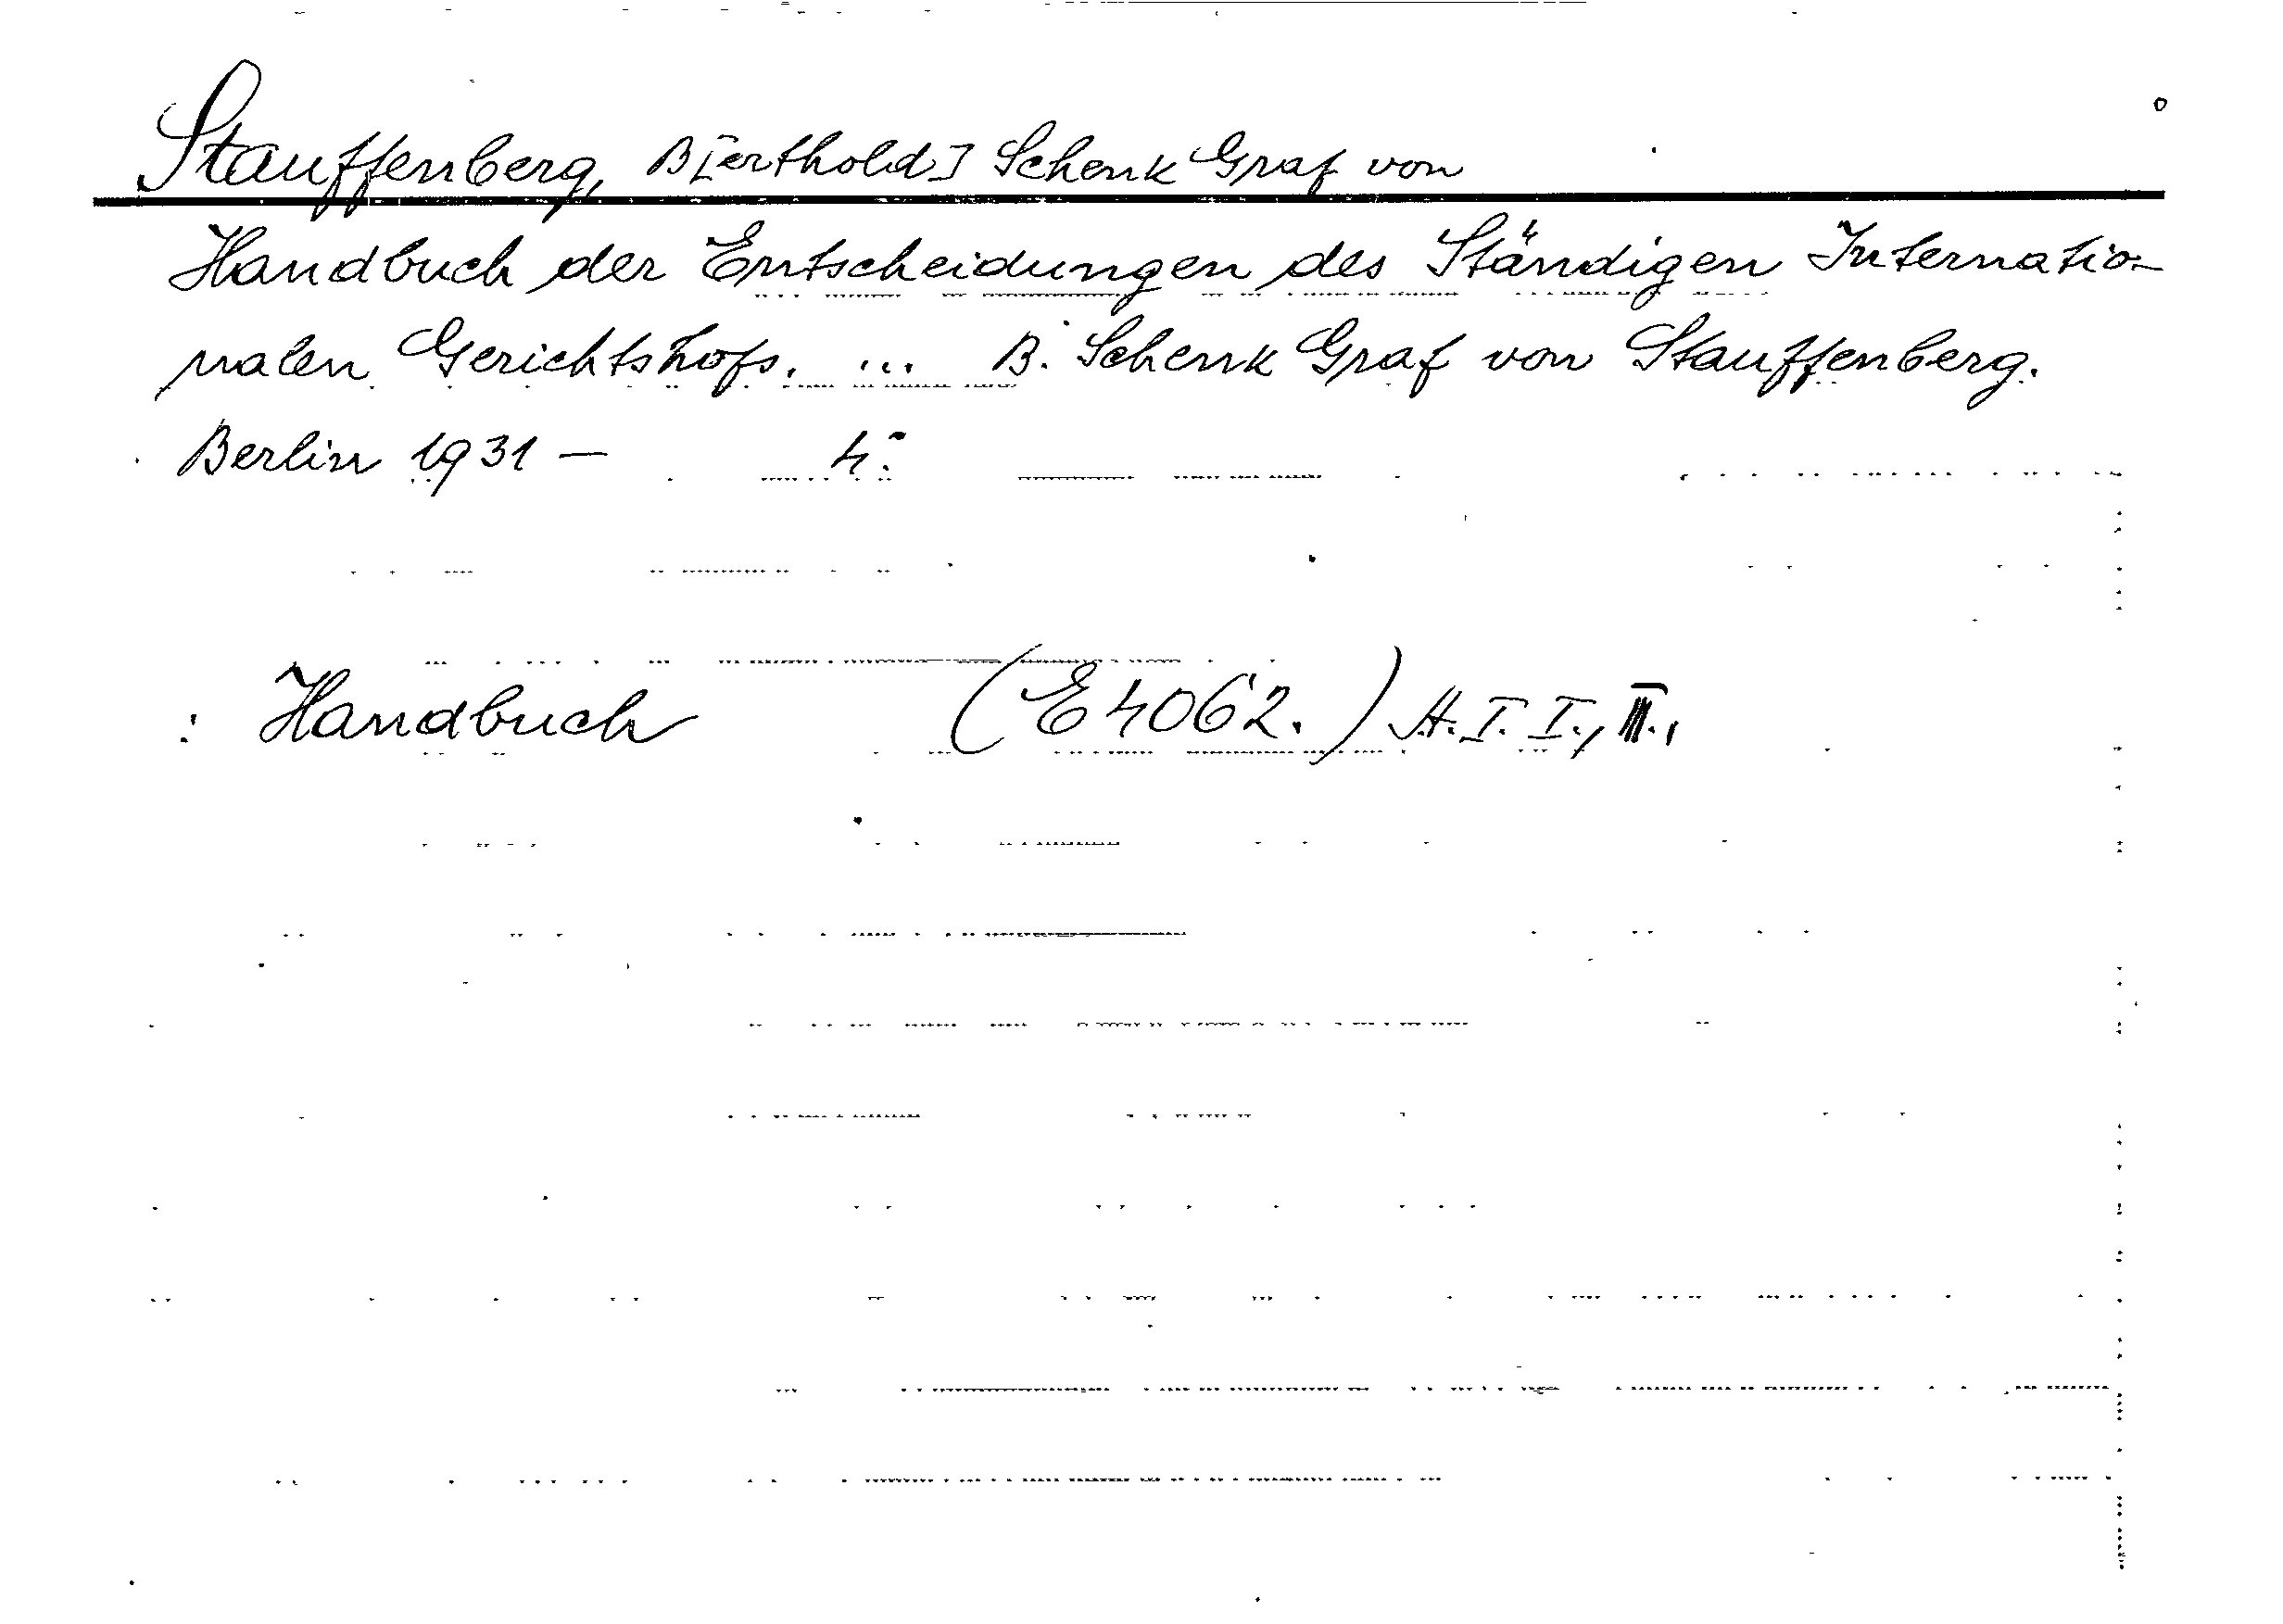 Stauffenberg, B[erthold] Schenk Graf von
Handbuch der Entscheidungen des Ständigen Internatio-
nalen Gerichtshofs. ... B. Schenk Graf von Stauffenberg.
Berlin 1931 — 4°.
: Handbuch (E4062.) A.I. I., II.,